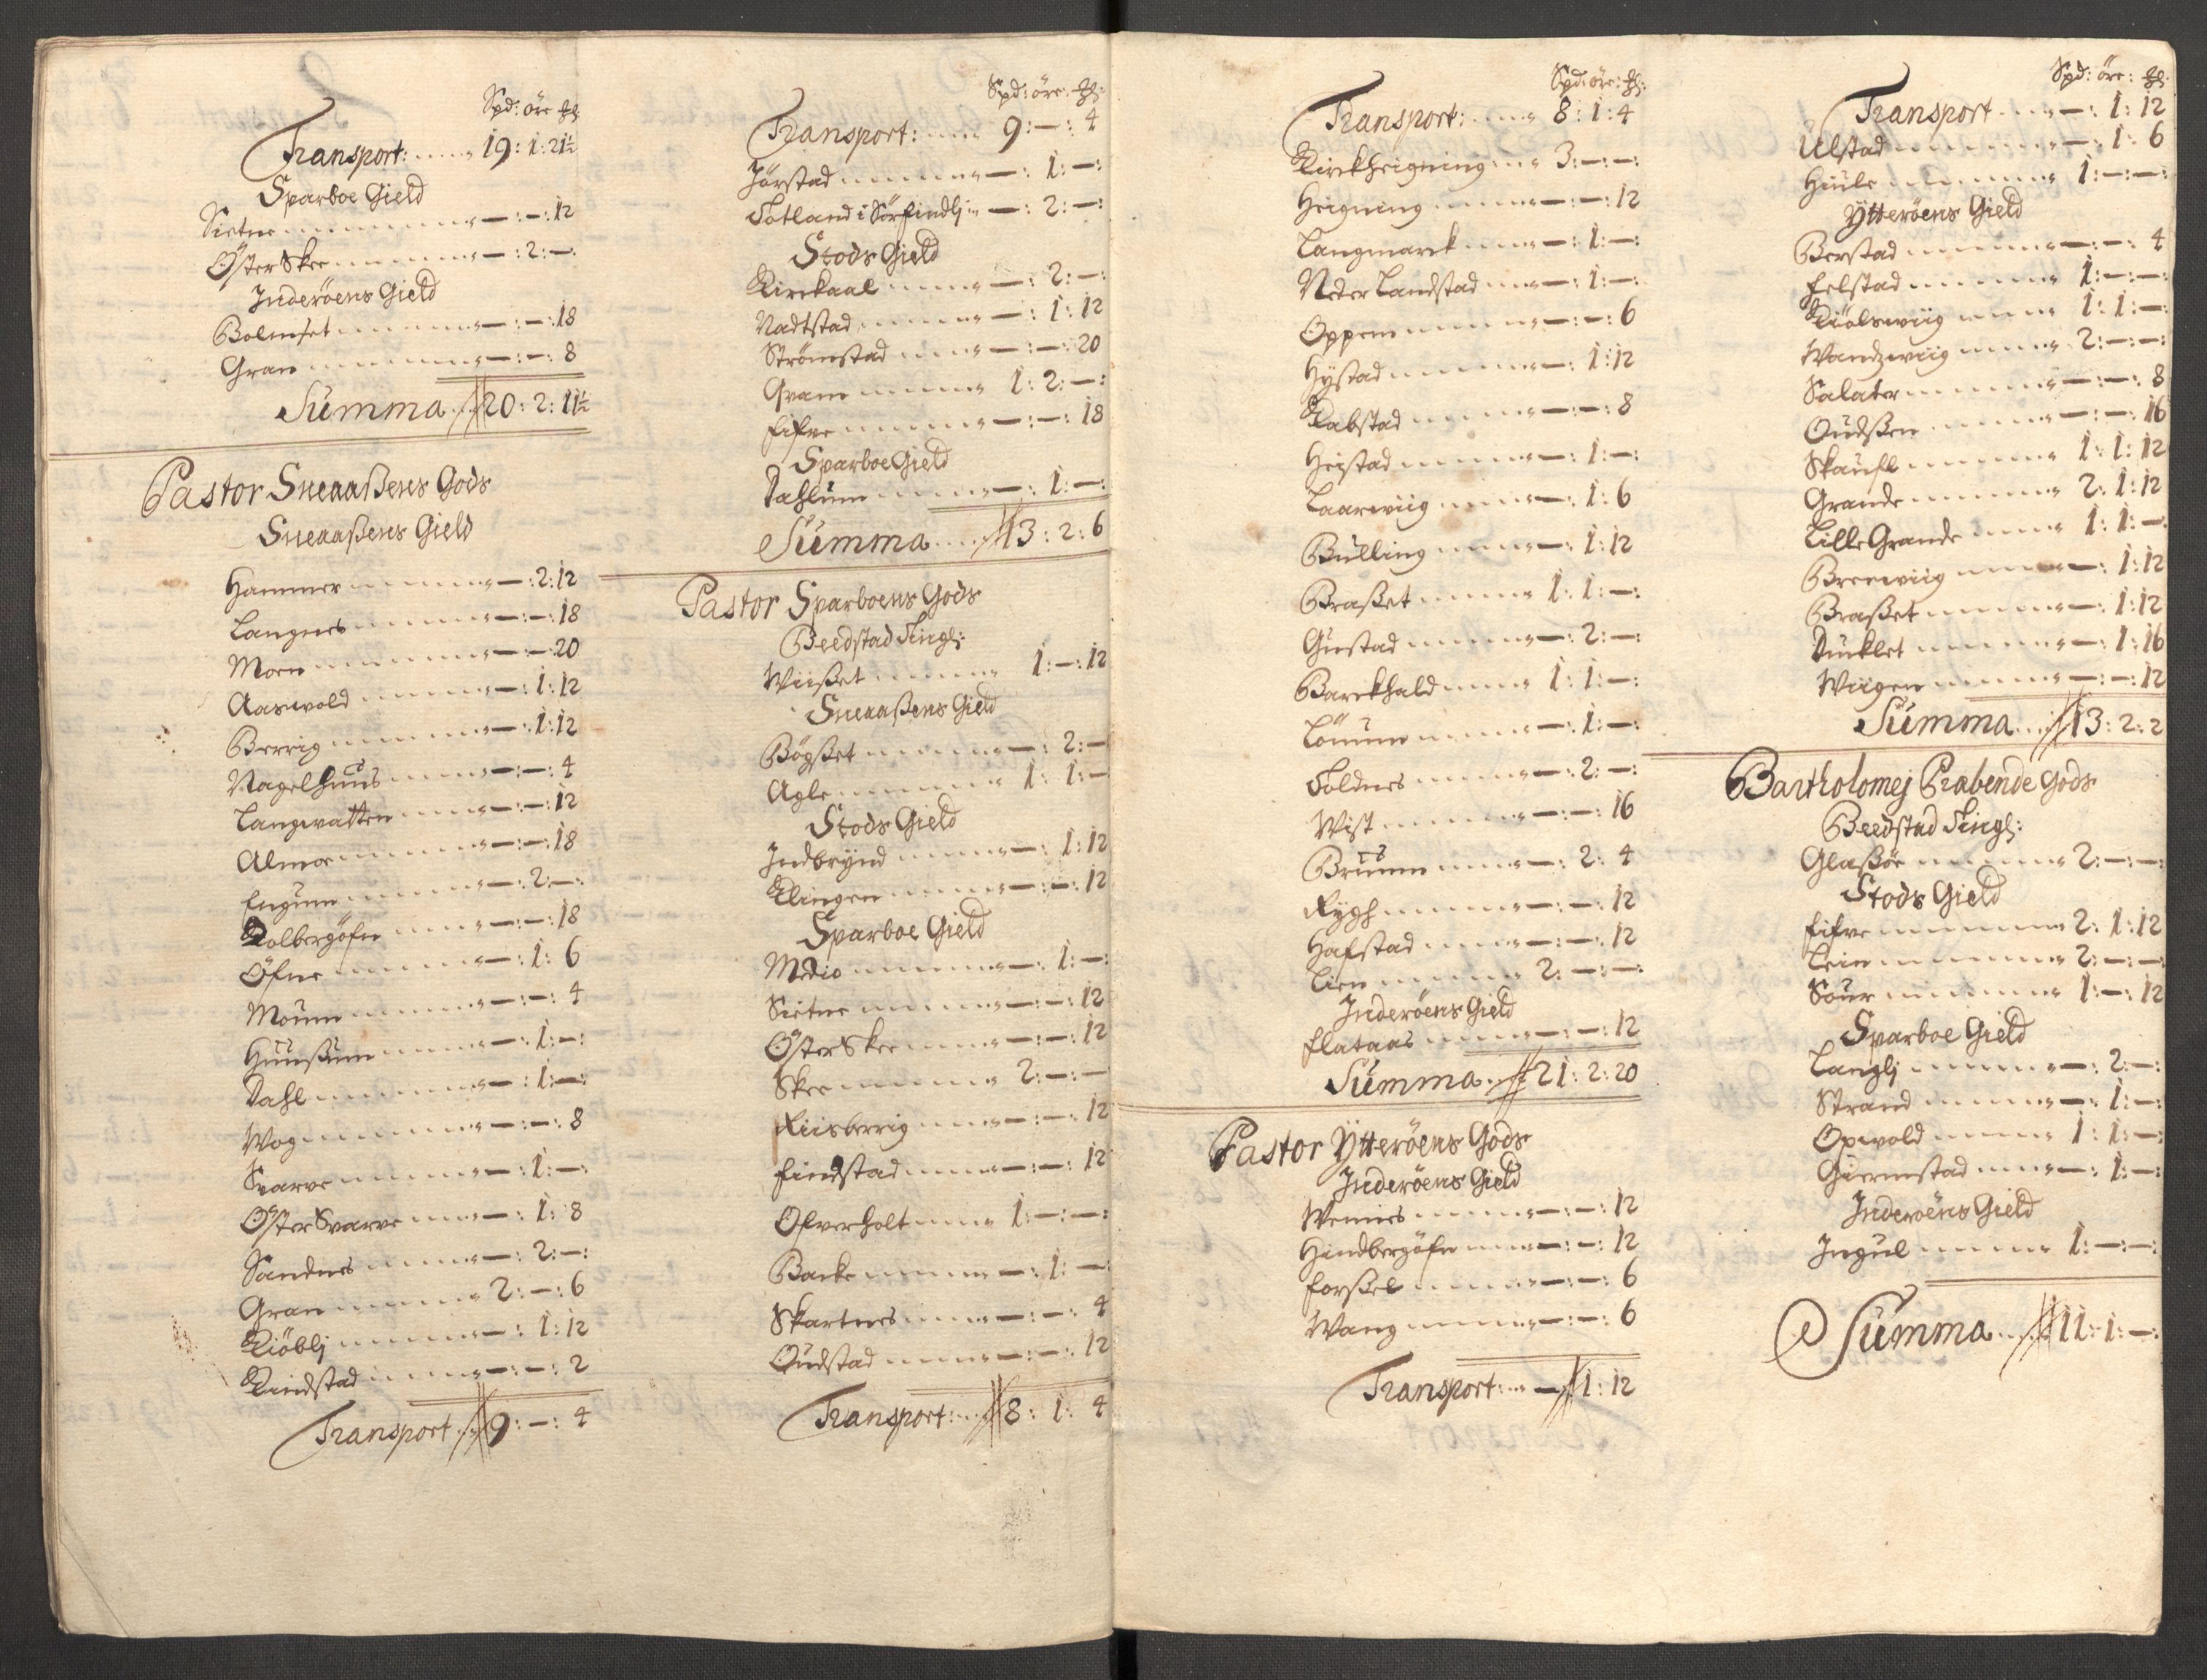 Spd: öre ℔
Transport: 19: 1: 21½
Sparboe Gield
Sietne —: —: 12
Öster Skee —: 2: —:
Inderöens Gield
Bolmset —: —: 18
Gran —: —: 8
Summa 20: 2: 11½
Pastor Sneaaßens Gods
Sneaaßens Gield
Hammer —: 2: 12
Langnes —: —: 18
Moen —: —: 20
Aaswold —: 1: 12
Berrig —: 1: 12
Nagelhuus —: —: 4
Langwatten —: —: 12
Almoe —: —: 18
Engum —: 2: —:
Kolbergöfn —: —: 18
Öfne —: 1: 6
Moum —: —: 4
Huußum —: 1: —:
Dahl —: 1: —:
Wog —: —: 8
Svarve —: 1: —:
Öster Svarve —: 1: 8
Sandnes —: 2: —:
Gran 2: —: 6
Kiöblj —: 1: 12
Kindstad —: —: 2
Transport 9: —: 4
Spd: öre: ℔:
Transport: 9: —: 4
Jörstad —: 1: —:
Totland i Sörfindlj —: 2: —:
Stods Gield
Kirckaal —: 2: —:
Nadtstad —: 1: 12
Strömstad —: —: 20
Qvam 1: 2: —:
Fifve —: —: 18
Sparboe Gield
Dahlum —: 1: —:
Summa 13: 2: 6
Pastor Sparboens Gods
Beedstad Tingl:
Wiißet 1: —: 12
Sneaaßens Gield
Bögßet —: 2: —
Agle 1: 1: —
Stods Gield
Indbrynd —: 1: 12
Klingen —: —: 12
Sparboe Gield
Medio —: 1: —:
Sietne —: —: 12
Öster Skee —: —: 12
Skee 2: —: —
Riisberrig —: —: 12
Findstad —: —: 12
Ofverholt 1: —: —:
Backe —: 1: —:
Skartnes —: —: 4
Oudstad —: —: 12
Transport: 8: 1: 4
Spd: öre: ℔:
Transport: 8: 1: 4
Kirckheigning 3: —: —:
Heigning —: —: 12
Langmarck —: 1: —:
Neder Landstad —: 1: —:
Oppem —: —: 6
Hÿstad —: 1: 12
Rabstad —: —: 8
Heistad —: 1: —:
Laarwiig —: 1: 6
Bulling —: 1: 12
Braßet 1: 1: —:
Giestad —: 2: —:
Barckhald 1: 1: —:
Lönum —: 1: —:
Toldnes —: 2: —:
Wist —: —: 16
Bruum —: 2: 4
Rygh —: —: 12
Hafstad —: —: 12
Lien 2: —: —:
Inderöens Gield
Flataas —: —: 12
Summa 21: 2: 20
Pastor Ytteröens Gods
Inderöens Gield
Wennes —: —: 12
Hindbergöfn —: —: 12
Forßet —: —: 6
Wang —: —: 6
Transport: — 1: 12
Spd: öre: ℔:
Transport —: 1: 12
Ulstad —: 1: 6
Hiule 1: —: —:
Ytteröens Gield
Berstad —: —: 4
Felstad 1: —: —:
Kiölswiig 1: 1: —:
Wandzwiig 2: —: —:
Salater —: —: 8
Oudßen —: —: 16
Skaufl 1: 1: 12
Grande 2: 1: 12
Lille Grande 1: 1: —
Breewiig —: 1: 12
Braßet —: 1: 12
Duklet —: 1: 16
Wiigen —: —: 12
Summa 13: 2: 2
Bartholomej Præbende Gods
Beedstad Tingl:
Glaßöe 2: —: —:
Stods Gield
Fifve 2: 1: 12
Lein 2: —: —
Sour 1: —: 12
Sparboe Gield
Langlj —: 2: —:
Strand —: 1: —:
Opwold 1: 1: —:
Giermstad —: 1: —:
Inderoëns Gield
Ingul 1: —: —:
Summa 11: 1: —: